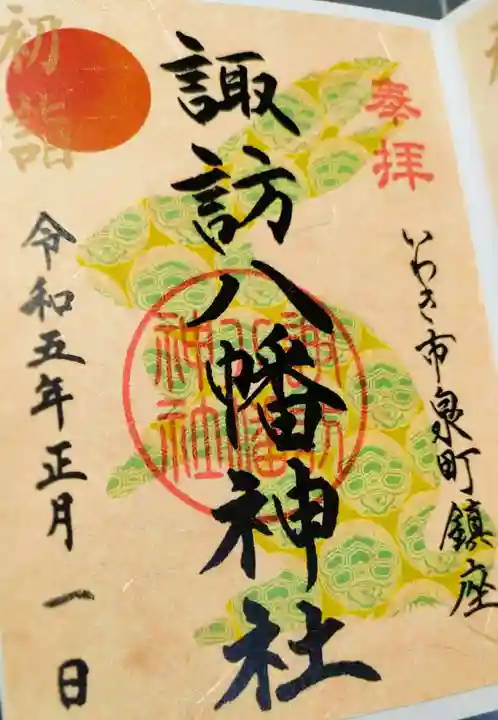 奉拝
いわき市泉町鎮座
諏訪八幡神社
諏訪八幡神社
初詣
令和五年正月一日